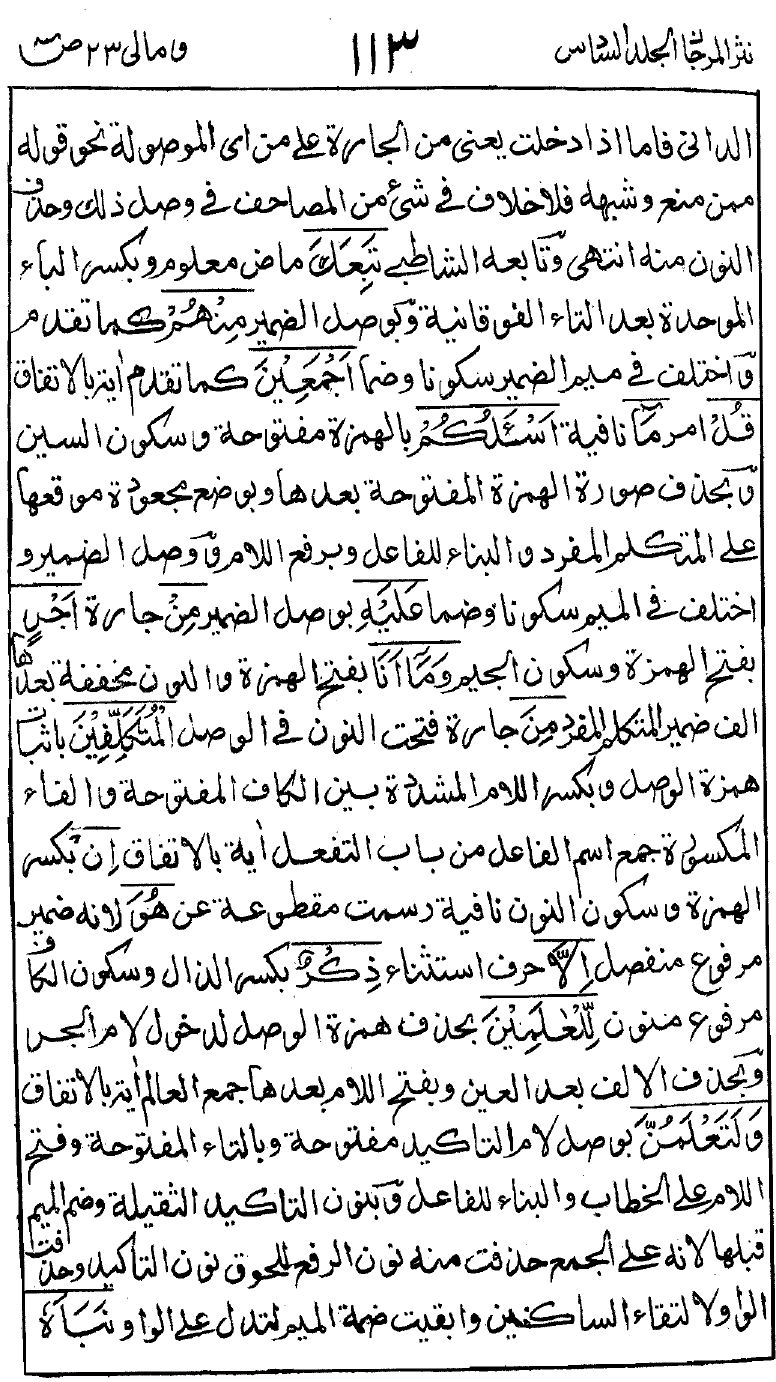 نثر المرجان الجلد السادس ١١٣ ومالی ٢٣ ص
الدانی فاما اذا دخلت یعنی من الجارة علی من ای الموصولة نحو قوله
ممن منع وشبهه فلا خلاف فی شئ من المصاحف فی وصل ذلك وحذف
النون منه انتهی وتابعه الشاطبی تَبِعَكَ ماض معلوم وبکسر الباء
الموحدة بعد التاء الفوقانیة وبوصل الضمیر مِنْهُمْ کما تقدم
واختلف فی میم الضمیر سکونا وضما اَجْمَعِیْنَ کما تقدم اٰیة بالاتفاق
قُلْ امر مَآ نافیة اَسْـَٔلُكُمْ بالهمزة مفتوحة وسکون السین
وبحذف صورة الهمزة المفتوحة بعدها وبوضع مجعودة موقعها
علی المتکلم المفرد والبناء للفاعل وبرفع اللام ووصل الضمیر و
اختلف فی المیم سکونا وضما عَلَیْهِ بوصل الضمیر مِنْ جارة اَجْرٍ
بفتح الهمزة وسکون الجیم وَمَآ اَنَا بفتح الهمزة والنون مخففة بعدها
الف ضمیر المتکلم المفرد مِنَ جارة فتحت النون فی الوصل الْمُتَكَلِّفِیْنَ باثبات
همزة الوصل وبکسر اللام المشددة بین الکاف المفتوحة والفاء
المکسورة جمع اسم الفاعل من باب التفعل اٰیة بالاتفاق اِنْ بکسر
الهمزة وسکون النون نافیة رسمت مقطوعة عن هُوَ لانه ضمیر
مرفوع منفصل اِلَّا حرف استثناء ذِكْرٌ بکسر الذال وسکون الکاف
مرفوع منون لِّلْعٰلَمِیْنَ بحذف همزة الوصل لدخول لام الجر
وبحذف الالف بعد العین وبفتح اللام بعدها جمع العالم اٰیة بالاتفاق
وَلَتَعْلَمُنَّ بوصل لام التاکید مفتوحة وبالتاء المفتوحة وفتح
اللام علی الخطاب والبناء للفاعل وبنون التاکید الثقیلة وضم المیم
قبلها لانه علی الجمع حذفت منه نون الرفع للحوق نون التاکید وحذفت
الواو لالتقاء الساکنین وابقیت ضمة المیم لتدل علی الواو نَبَاَهٗ